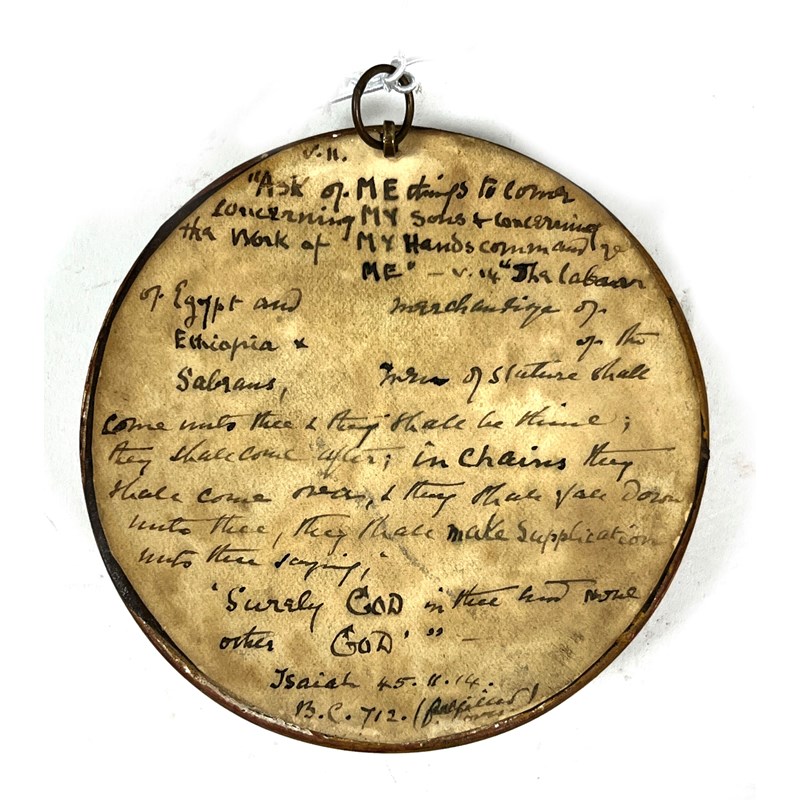 v. 11.
"Ask of ME things to come
concerning MY sons & concerning
the Work of MY Hands command ye
ME" — v. 14 "The labour
of Egypt and merchandise of
Ethiopia & of the
Sabeans, men of stature shall
come unto thee & they shall be thine;
they shall come after; in chains they
shall come over, & they shall fall down
unto thee, they shall make supplication
unto thee saying,
'Surely GOD in thee and none
other GOD' " —
Isaiah 45. 11. 14.
B.C. 712. (fulfilled